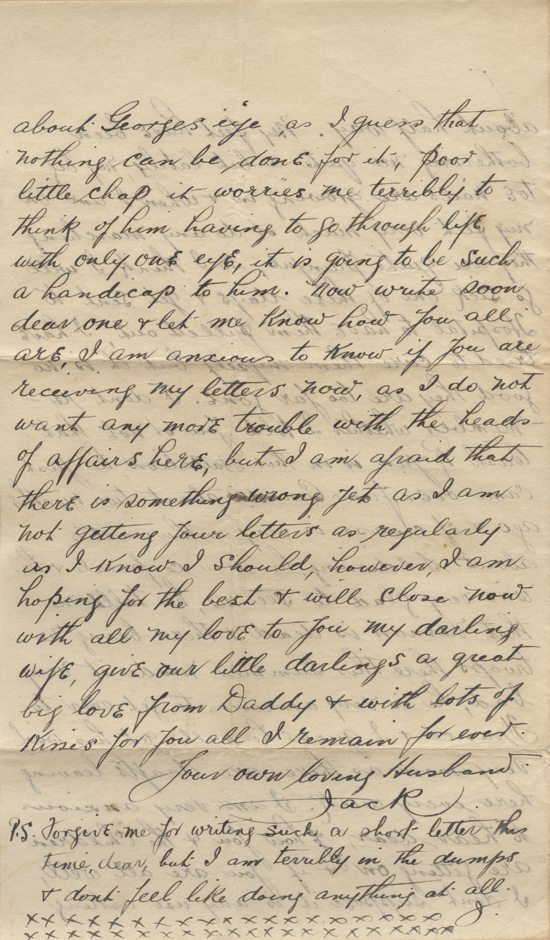 about Georges eye, as I guess that
nothing can be done for it, poor
little chap it worries me terribly to
think of him having to go through life
with only one eye, it is going to be such
a handicap to him. Now write soon
dear one & let me know how you all
are, I am anxious to know if you are
receiving my letters now, as I do not
want any more trouble with the heads
of affairs here, but I am afraid that
there is something wrong yet as I am
not getting your letters as regularly
as I know I should, however, I am
hoping for the best & will close now
with all my love to you my darling
wife, give our little darlings a great
big love from Daddy & with lots of
kisses for you all I remain for ever.
Your own loving Husband.
Jack
P.S. Forgive me for writing such a short letter this
time, dear, but I am terribly in the dumps
& dont feel like doing anything at all.
J.
xxxxxxxxxxxxxxxxxxxxxxxxxx
xxxxxxxxxxxxxxxxxxxxxxxxxx